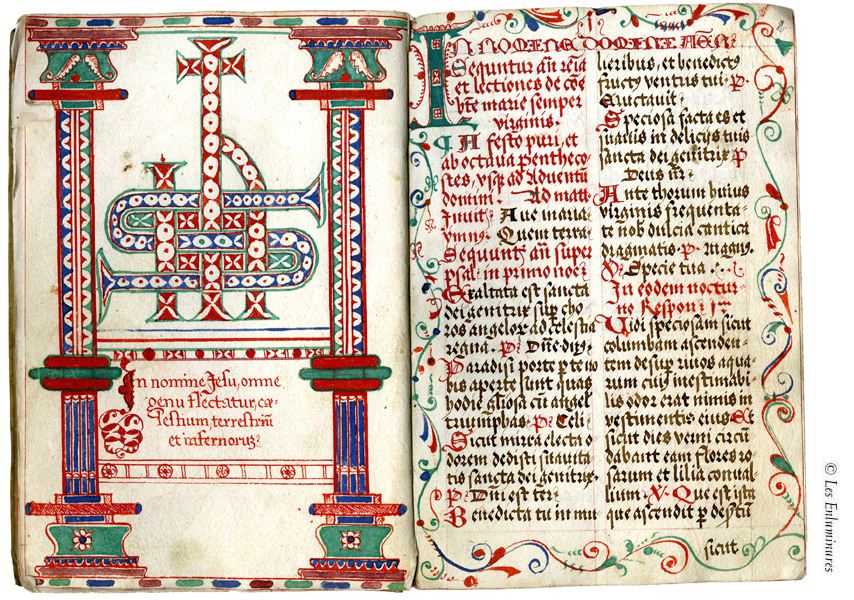 In nomine Jesu, omne
genu flectatur, cæ-
lestium, terrestriū
et infernorꝫ
IN NOMINE DOMINI AMEN
Sequntur añ rẽia
et lectiones de cõe
btẽ marie semper
virginis.
A festo puri, et
ab octaua penthecos
tes, vsqꝫ ad Aduentũ
domini. Ad matt
Inuit Aue maria
Quem terra
Sequntᷣ añ super
psal. in primo noct
Exaltata est sancta
dei genitrix sup cho
ros angelorꝫ ad celestia
regna. P. Dñe dñs
Paradisi porte p te no
bis aperte sunt quas
hodie gliosa cũ angel
triumphas. P. Celi
Sicut mirra electa o
dorem dedisti suauita
tis sancta dei genitrix.
P. Dñi est ter
Benedicta tu in mu
lieribus, et benedictꝰ
fructꝰ ventris tui. P.
Eructauit
Speciosa facta es et
suauis in delicijs tuis
sancta dei genitrix P
Deus nr̃
Ante thorum huius
virginis frequenta-
te nob dulcia cantica
dragmatis. P. Magnꝰ
V. Specie tua
In eodem noctur-
no Respon. I
Vidi speciosam sicut
columbam ascenden-
tem desuper riuos aqua-
rum cuiꝰ inestimabi-
lis odor erat nimis in
vestimentis eius Et
sicut dies verni circũ
dabant eam flores ro
sarum et lilia conual-
lium V. Que est ista
que ascendit p desertũ
sicut
© Les Enluminures